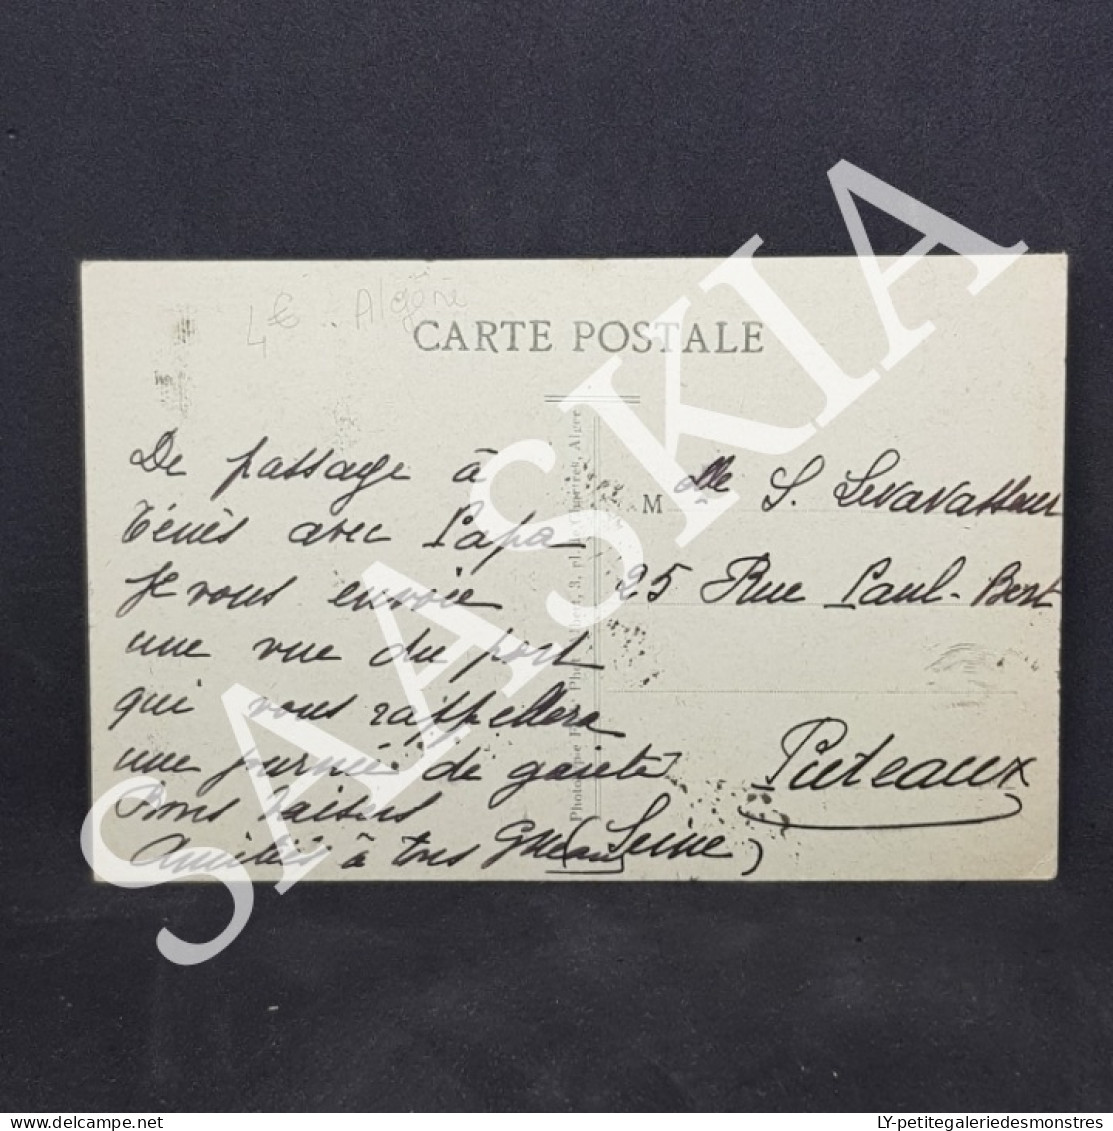 4€ .. Algérie
CARTE POSTALE
De passage à
Ténès avec Papa
Je vous envoie
une vue du port
qui vous rappellera
une journée de gaieté
Bons baisers
Amitiés à tous
M elle S. Levavasseur
25 Rue Paul-Bert
Puteaux
(Seine)
3, r. de Chartres, Alger
SAASKIA
LY-petitegaleriedesmonstres